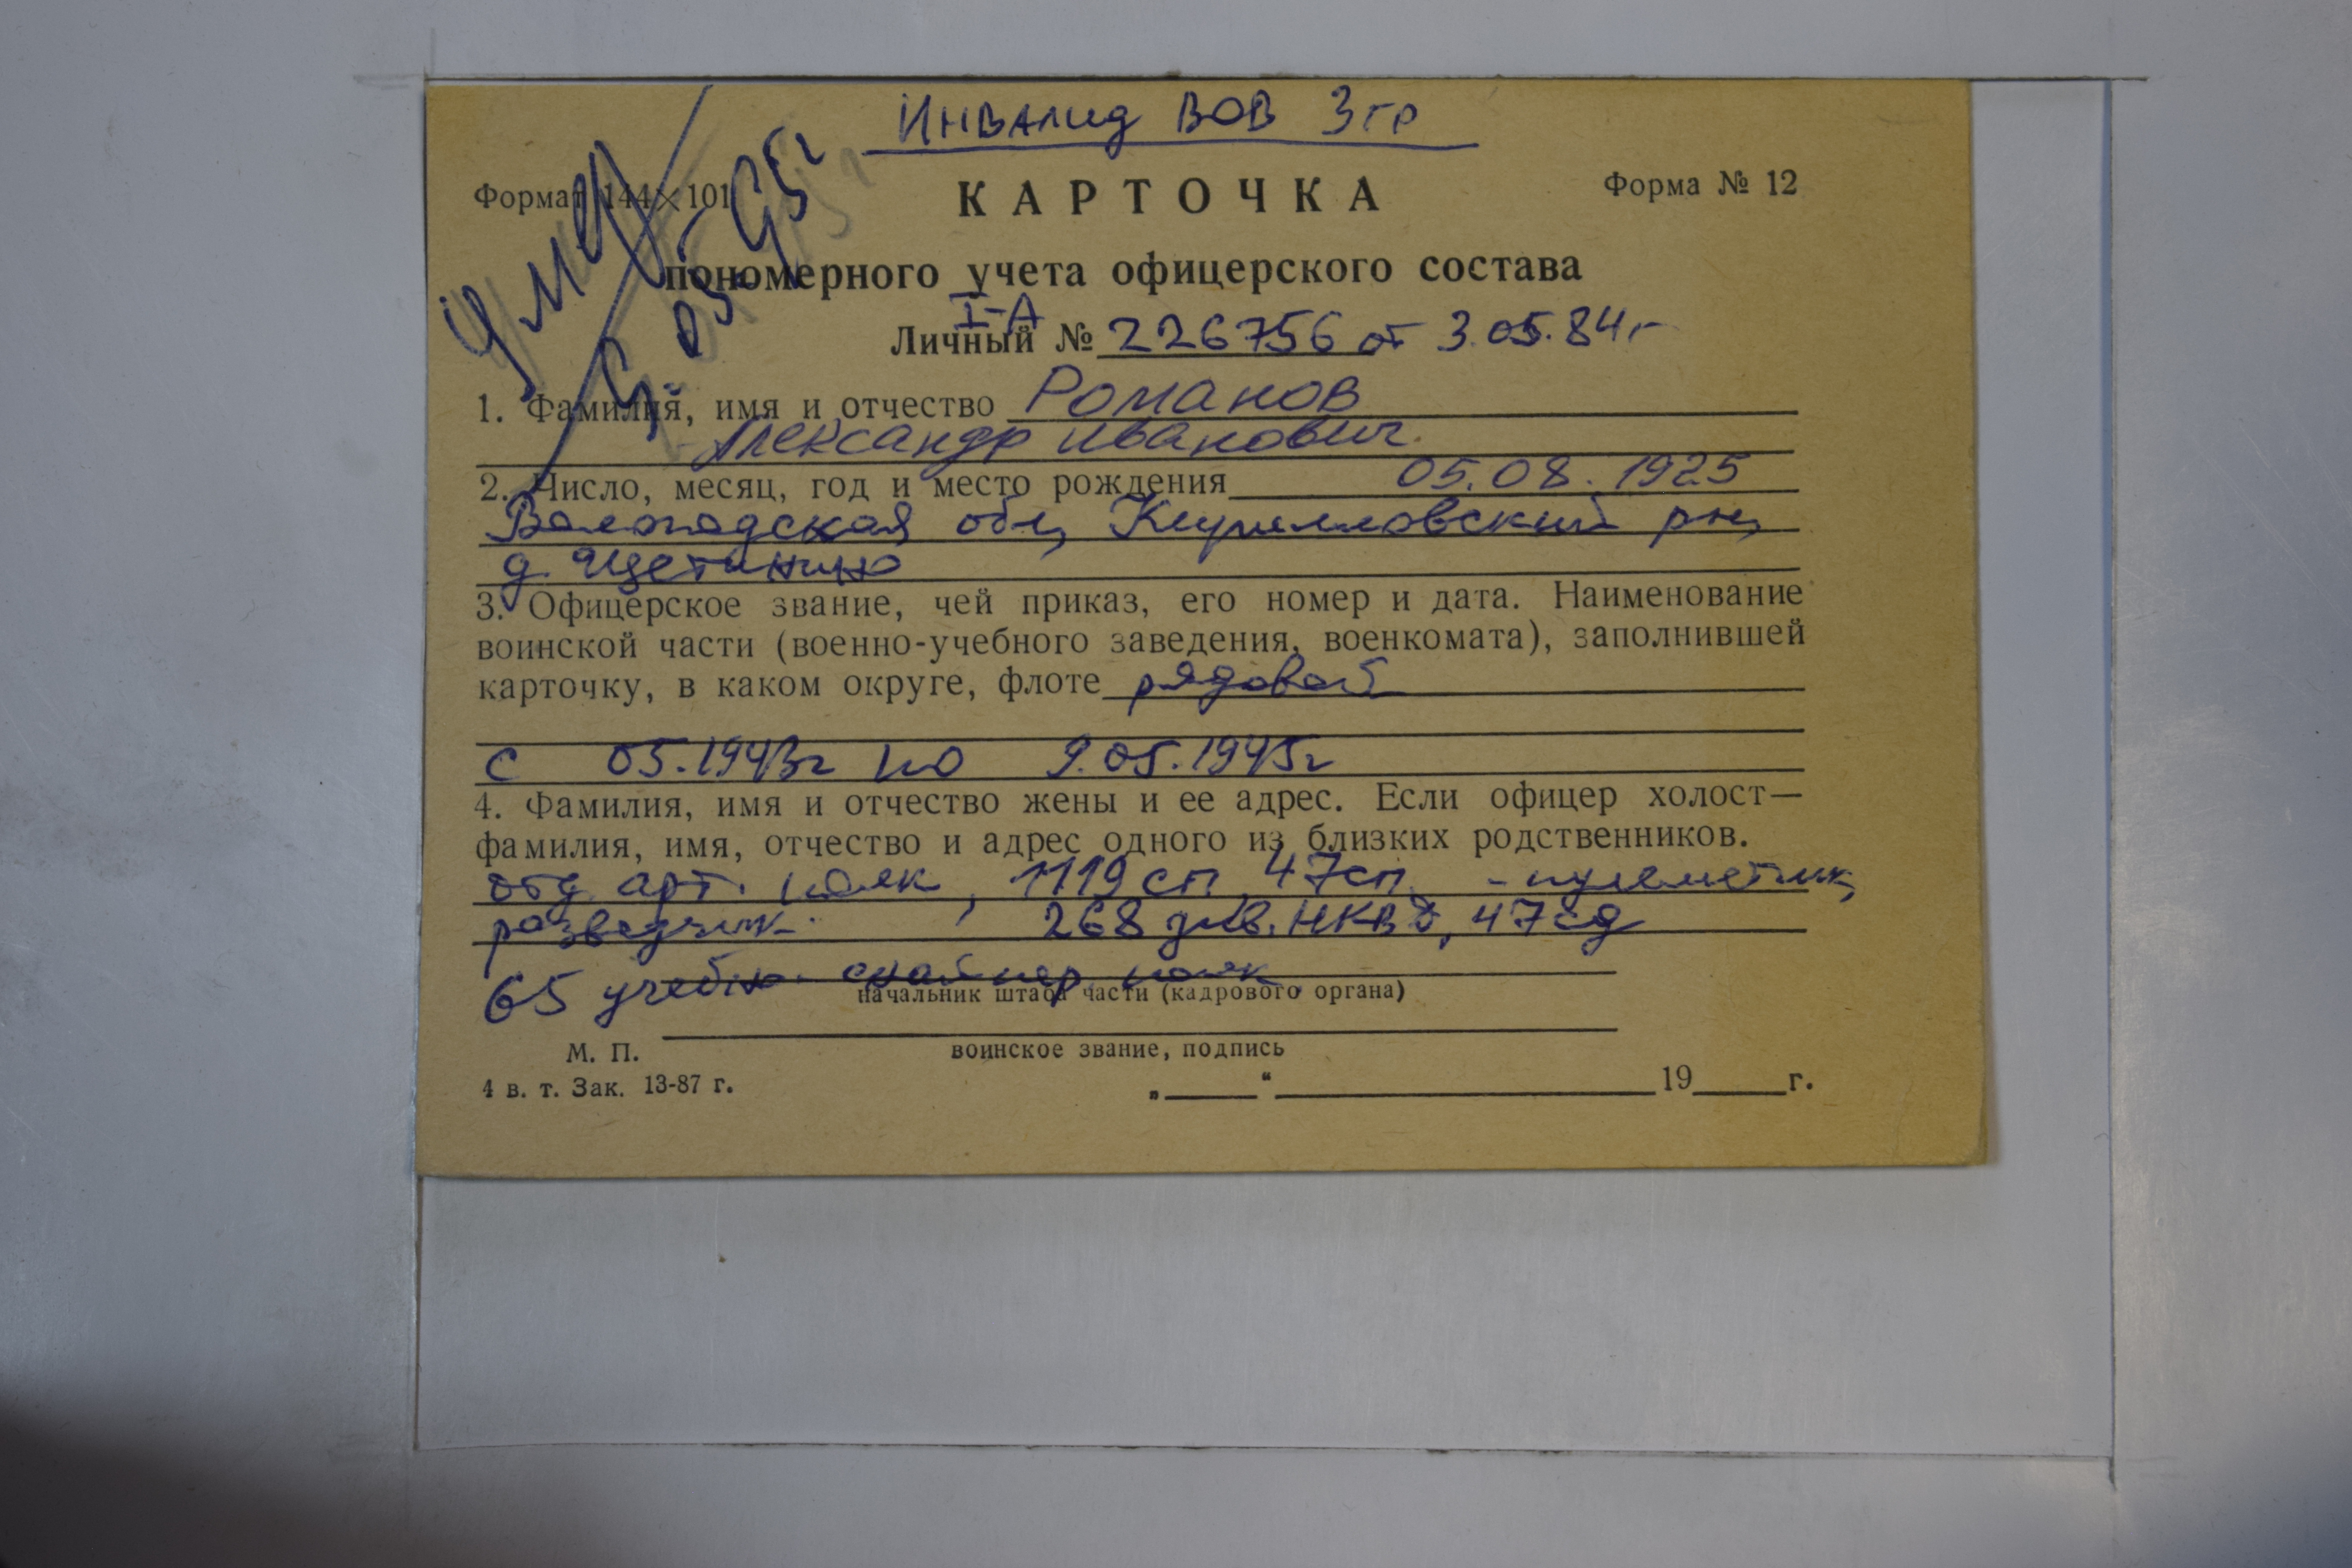 Инвалид ВОВ 3 гр
Умер
5.05-95г
Формат 144×101
КАРТОЧКА
Форма № 12
пономерного учета офицерского состава
I-А
Личный № 226756 от 3.05.84 г
1. Фамилия, имя и отчество Романов
Александр Иванович.
2. Число, месяц, год и место рождения 05.08.1925
Вологодская обл, Кирилловский рн,
д. Щетинино
3. Офицерское звание, чей приказ, его номер и дата. Наименование
воинской части (военно-учебного заведения, военкомата), заполнившей
карточку, в каком округе, флоте рядовой
с 05.1943г по 9.05.1945г
4. Фамилия, имя и отчество жены и ее адрес. Если офицер холост—
фамилия, имя, отчество и адрес одного из близких родственников.
отд. арт. полк, 1119 сп, 47 сп - пулеметчик,
разведчик. 268 див. НКВД, 47 сд
65 учебн. снайпер полк
начальник штаба части (кадрового органа)
М. П.
воинское звание, подпись
4 в. т. Зак. 13-87 г.
„ “ 19 г.